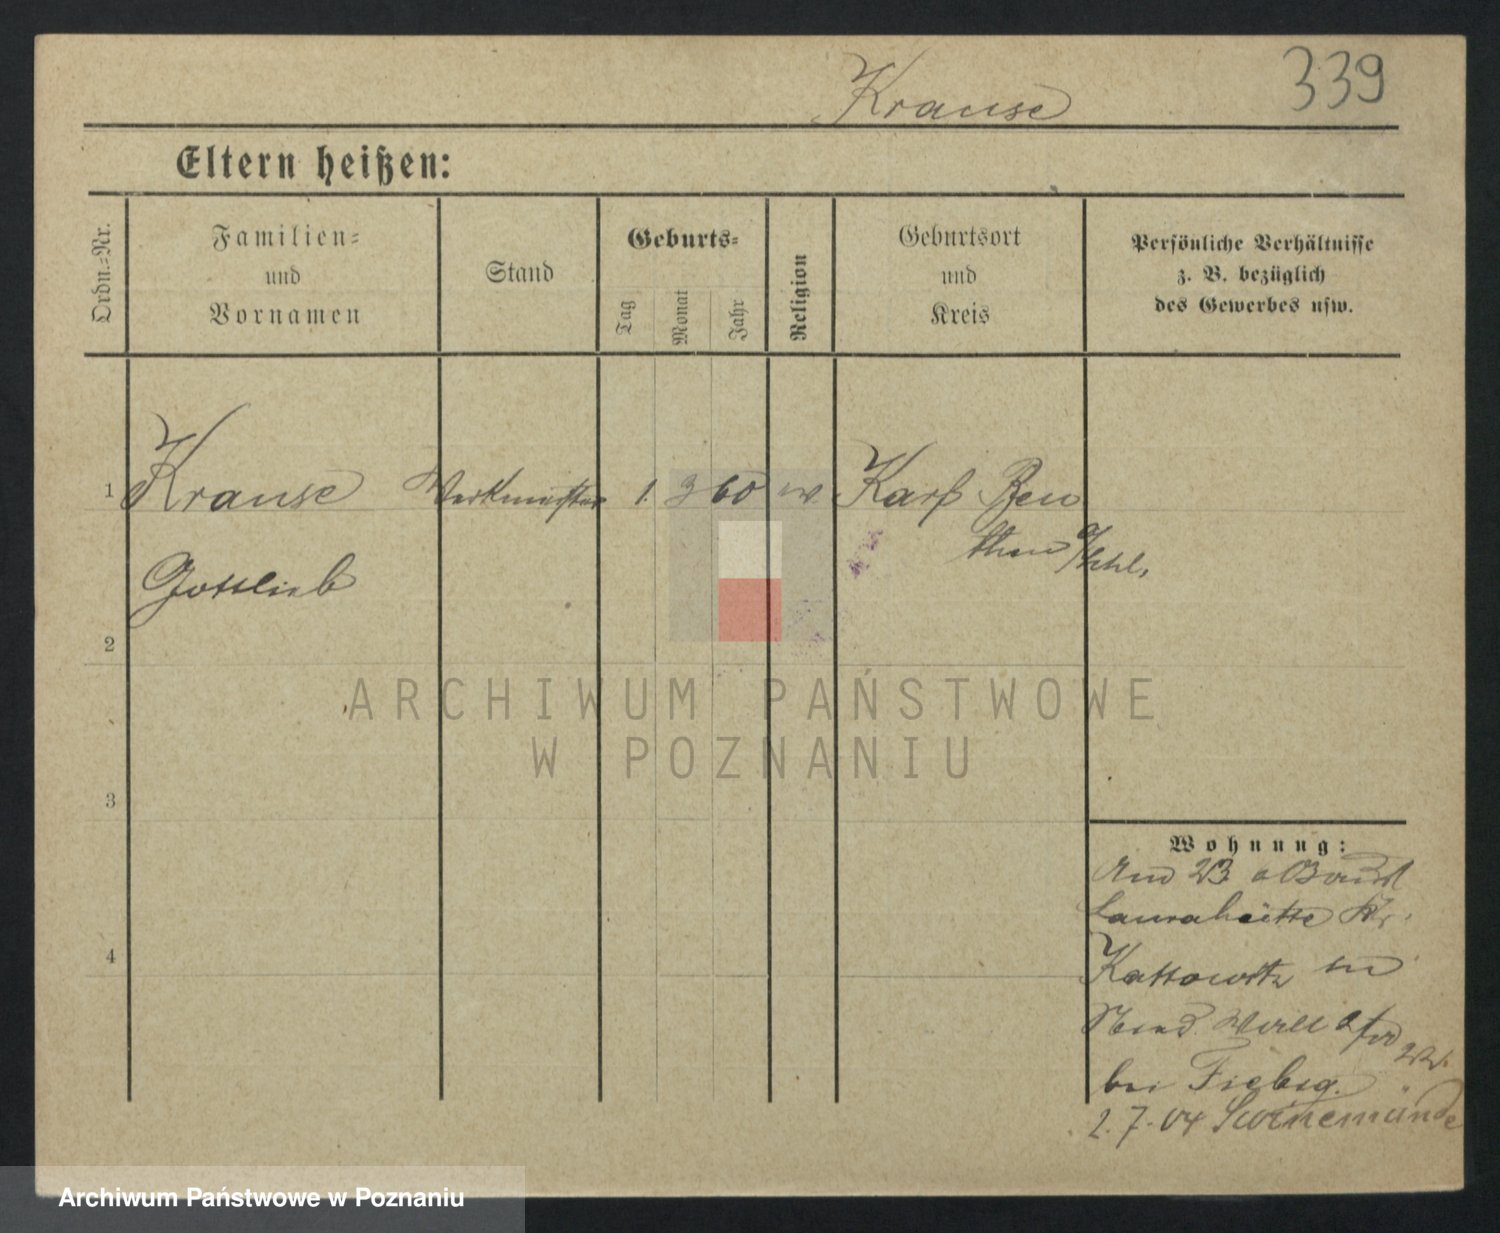 Krause 339
Eltern heißen:
Ordn.-Nr.
Familien-
und
Vornamen
Stand
Geburts-
Tag
Monat
Jahr
Religion
Geburtsort
und
Kreis
Persönliche Verhältnisse
z. B. bezüglich
des Gewerbes usw.
1 Krause Werkmeister 1. 3 60 ev. Karf Beu
then
Gottlieb
2
3
4
Wohnung:
Laurahütte Kr.
Kattowitz
bei Fiebig.
2.7.04 Swinemünde
ARCHIWUM PAŃSTWOWE
W POZNANIU
Archiwum Państwowe w Poznaniu